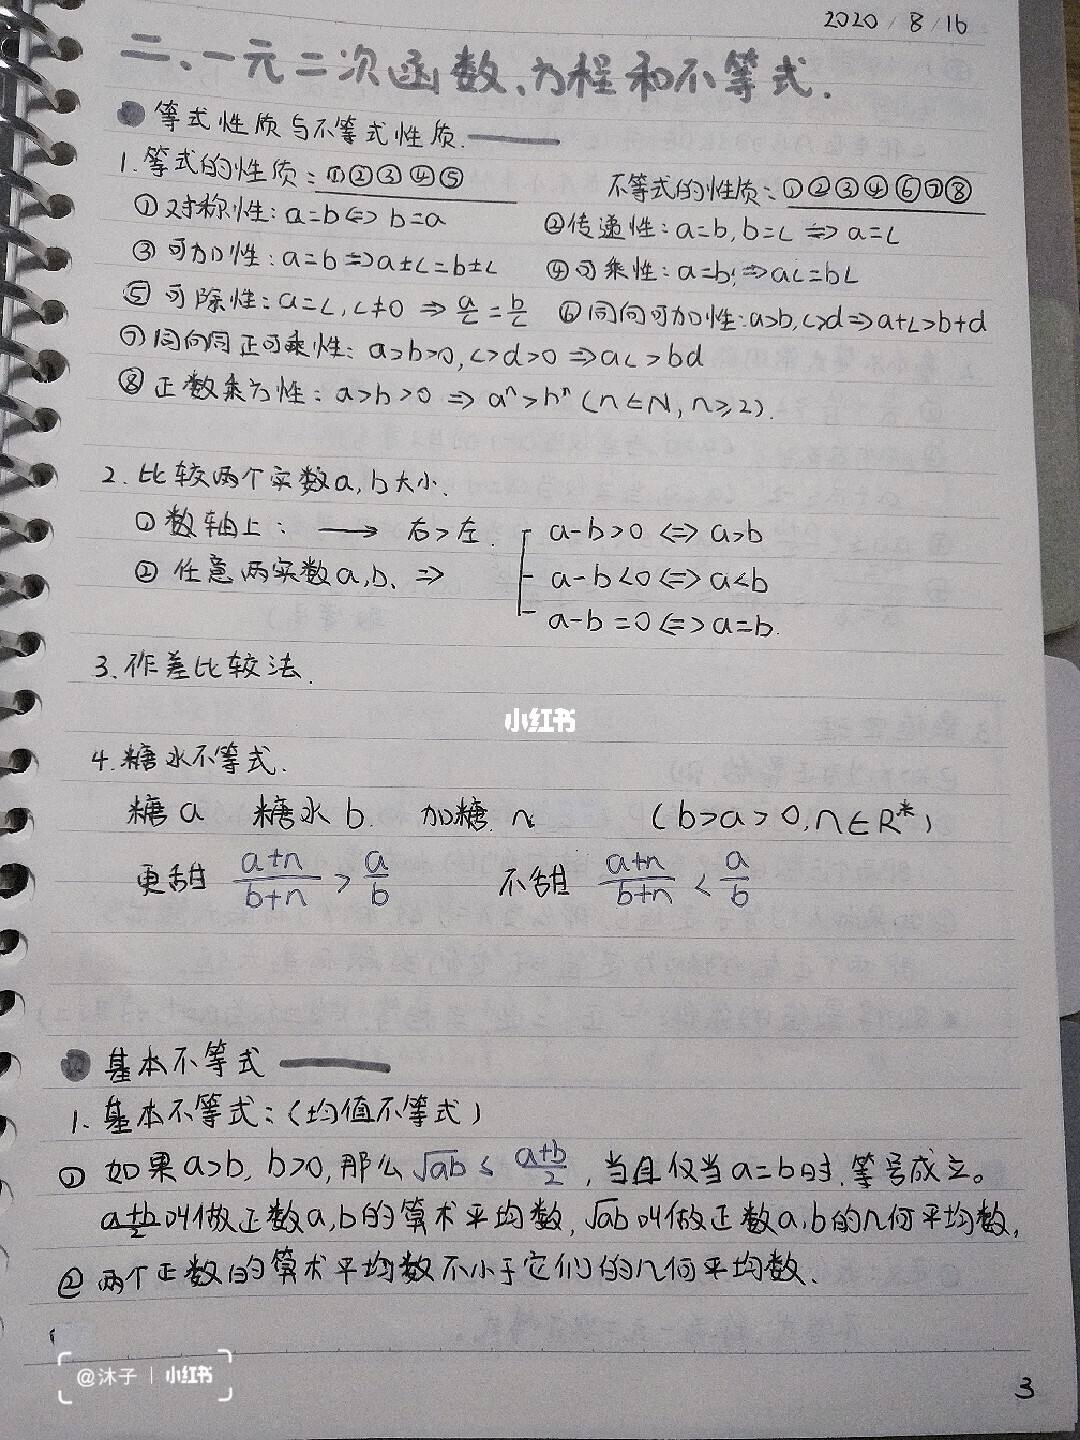 2020/8/16
二、一元二次函数、方程和不等式.
等式性质与不等式性质.
1.等式的性质:①②③④⑤ 不等式的性质:①②③④⑥⑦⑧
①对称性:a=b⇔b=a ②传递性:a=b,b=c⇒a=c
③可加性:a=b⇒a±c=b±c ④可乘性:a=b,⇒ac=bc
⑤可除性:a=c,c≠0⇒a/c=b/c ⑥同向可加性:a>b,c>d⇒a+c>b+d
⑦同向同正可乘性:a>b>0,c>d>0⇒ac>bd
⑧正数乘方性:a>b>0⇒aⁿ>bⁿ(n∈N,n≥2).
2.比较两个实数a,b大小.
①数轴上: → 右>左. a-b>0⇔a>b
②任意两实数a,b、⇒ a-b<0⇔a<b
a-b=0⇔a=b.
3.作差比较法.
小红书
4.糖水不等式.
糖a 糖水b. 加糖.n (b>a>0,n∈R*)
更甜 (a+n)/(b+n)>a/b 不甜 (a+n)/(b+n)<a/b
基本不等式
1.基本不等式:(均值不等式)
①如果a>b,b>0,那么√ab≤(a+b)/2,当且仅当a=b时,等号成立。
(a+b)/2叫做正数a,b的算术平均数,√ab叫做正数a,b的几何平均数,
②两个正数的算术平均数不小于它们的几何平均数、
@沐子 | 小红书
3